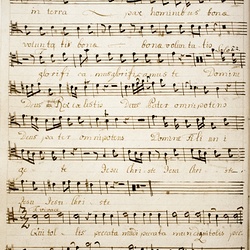 in terra pax hominibus bona
voluntatis bona bona voluntatis
glorificamus glorificamus te Domine
Deus Rex cælestis Deus Pater omnipotens
Deus pater omnipotens Domine fili uni
ge- te Jesu Christe Jesu Christe
Jesu Jesu Christe
Qui tollis peccata mundi peccata mundi